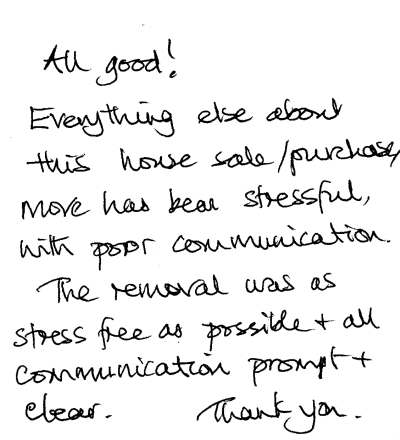 All good!
Everything else about
this house sale/purchase,
move has been stressful,
with poor communication.
The removal was as
stress free as possible + all
communication prompt +
clear. Thank you.